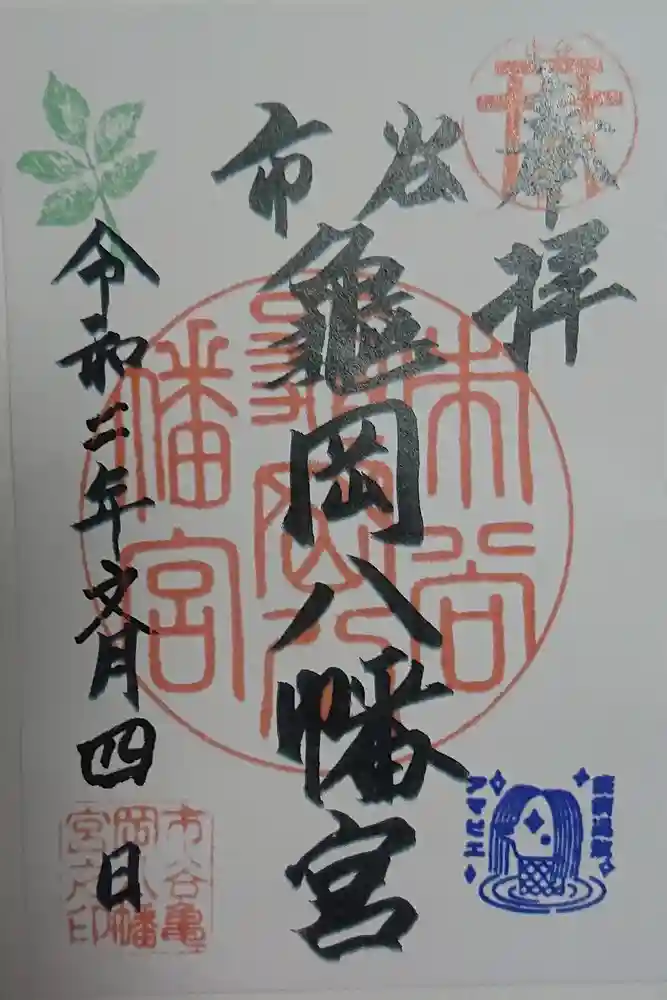 奉拝
市谷
亀岡八幡宮
令和二年文月四日
市谷
亀岡八
幡宮
市谷亀
岡八幡
宮之印
アマビエ